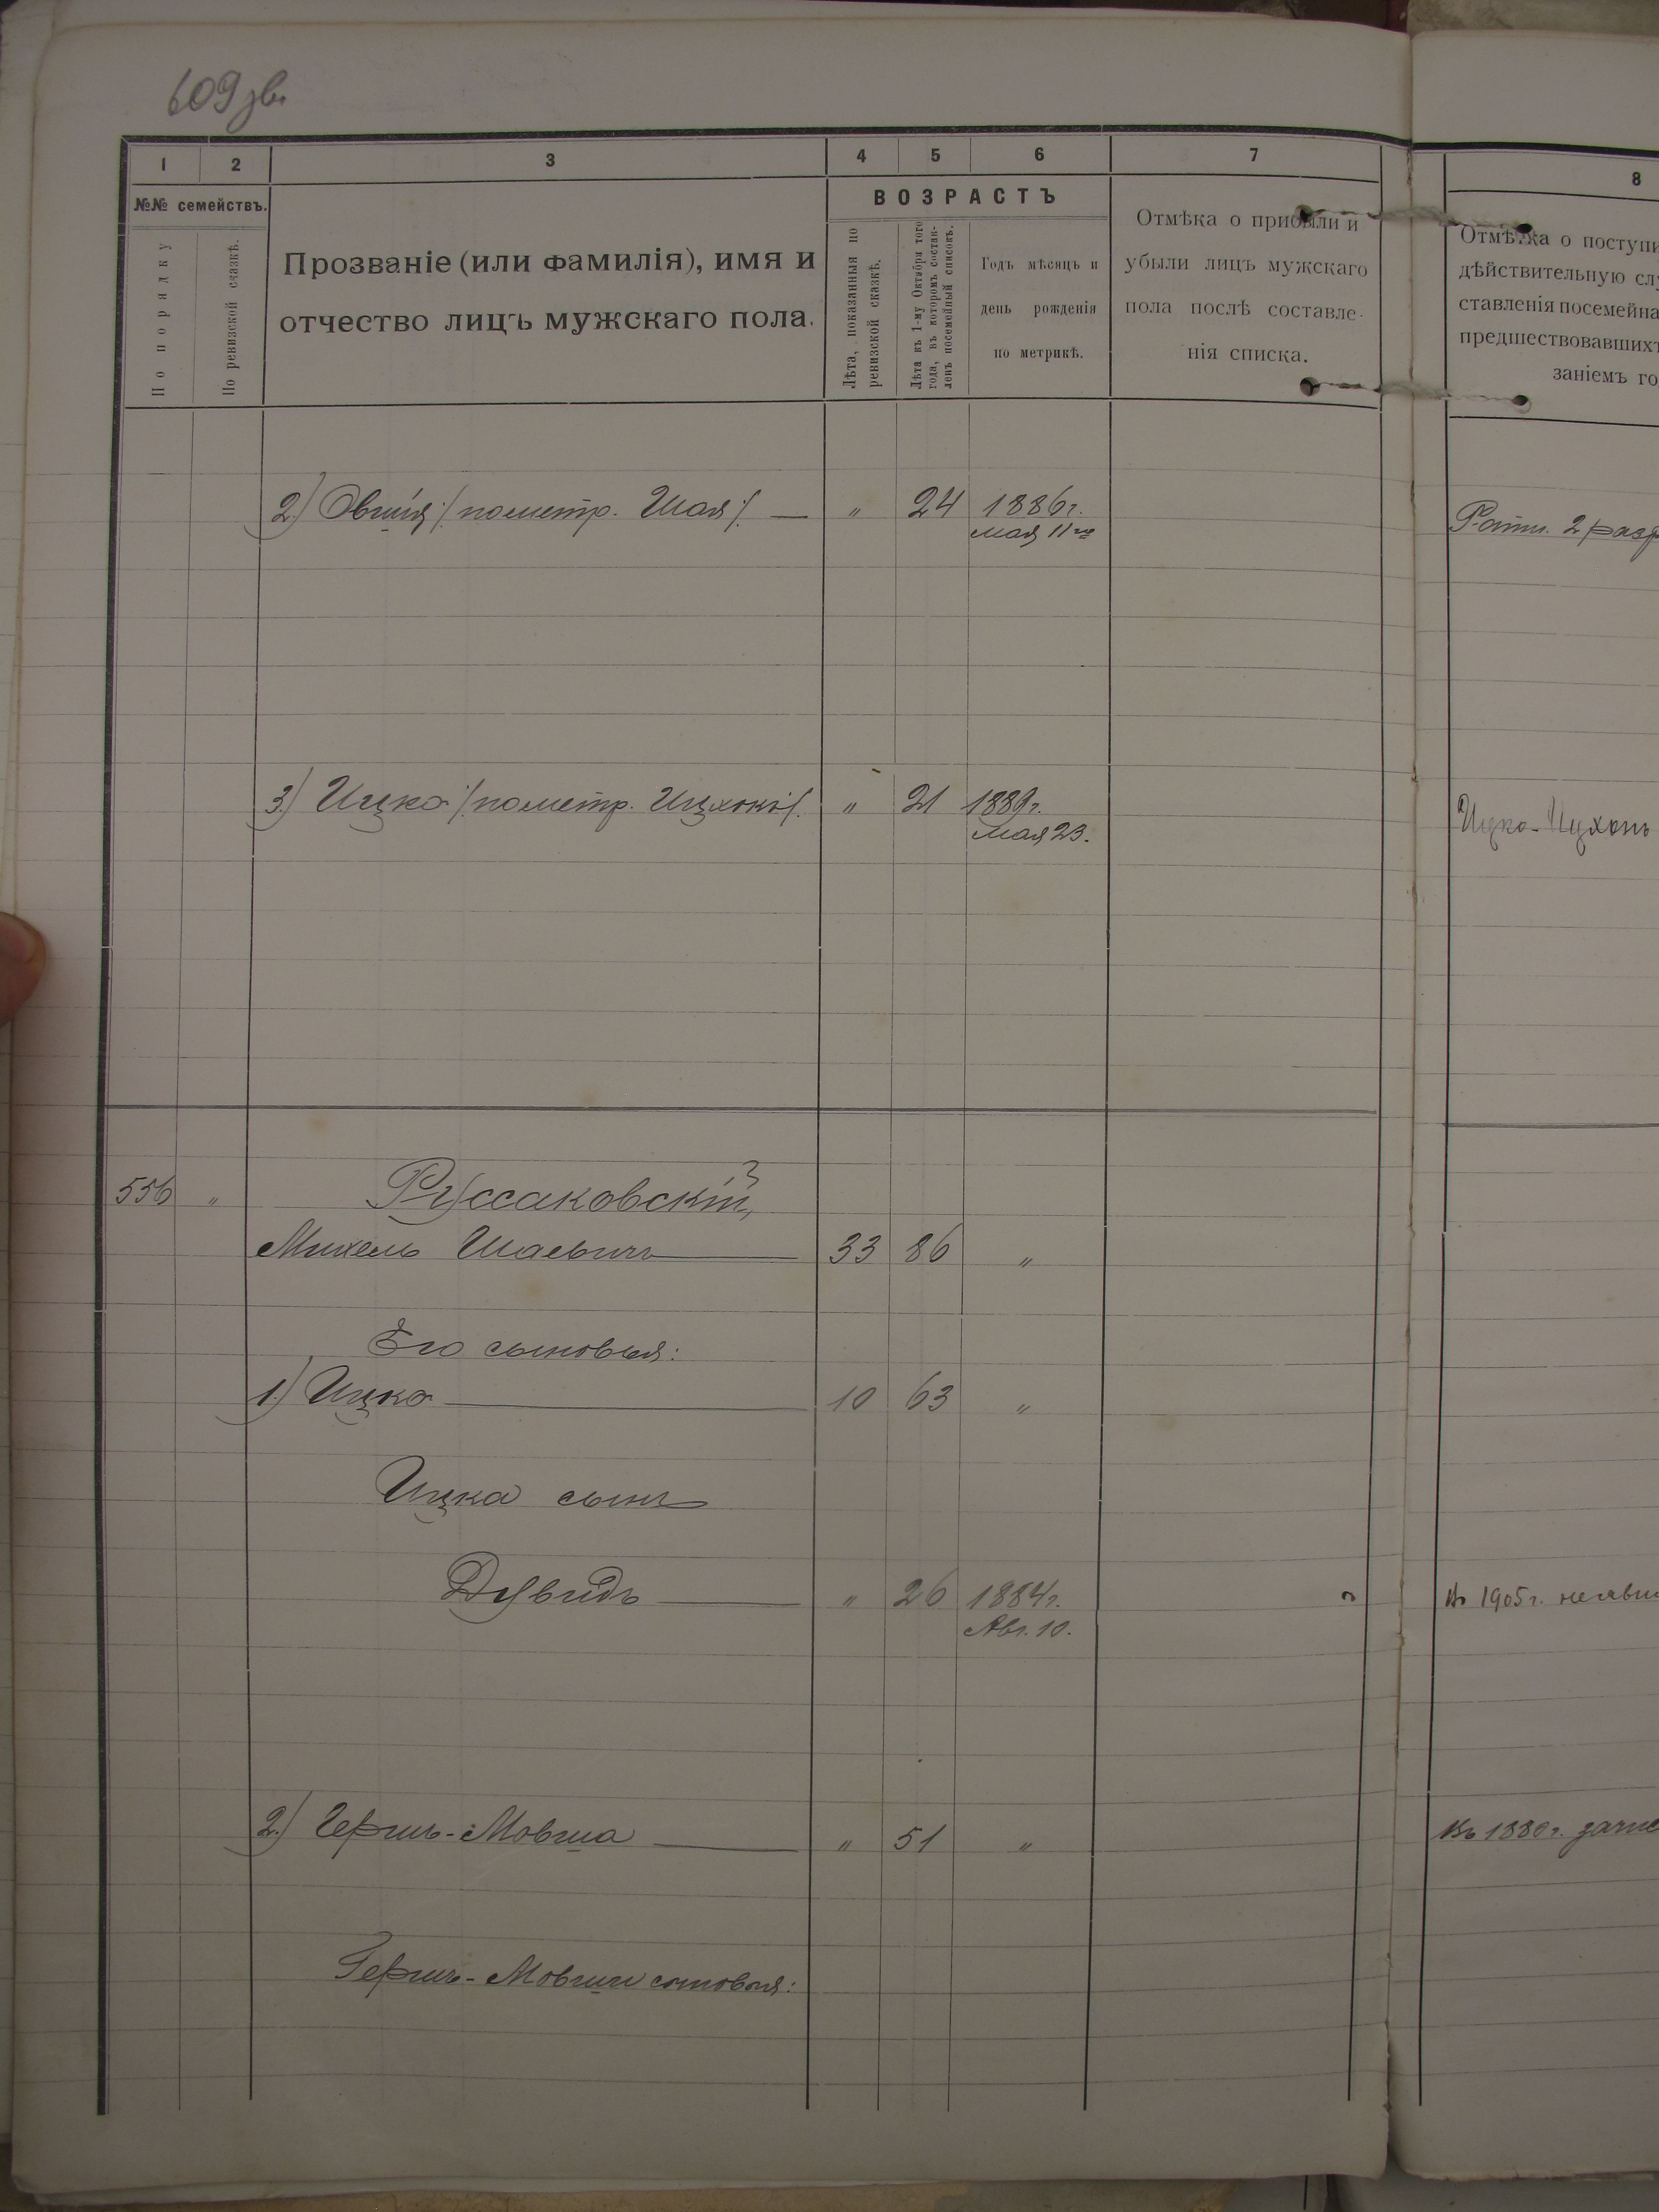 609 зв.
1 2 3 4 5 6 7 8
№№ семействъ.
По порядку
По ревизской сказкѣ.
Прозваніе (или фамилія), имя и
отчество лицъ мужскаго пола.
ВОЗРАСТЪ
Лѣта, показанныя по
ревизской сказкѣ.
Лѣта къ 1-му Октября того
года, въ которомъ состав-
ленъ посемейный списокъ.
Годъ мѣсяцъ и
день рожденія
по метрикѣ.
Отмѣка о прибыли и
убыли лицъ мужскаго
пола послѣ составле-
нія списка.
Отмѣтка о поступи
дѣйствительную слу
ставленія посемейна
предшествовавшихъ
заніемъ го
2) Овшія /: по метр. Шая :/ — " 24 1886 г.
мая 11го
Ратн. 2 разр
3) Ицко /: по метр. Ицхокъ :/ " 21 1889 г.
мая 23.
Ицко-Ицхокъ
556 " Руссаковскій,
Михель Шаевичъ 33 86 "
Его сыновья:
1) Ицко 10 63 "
Ицка сынъ
Дувидъ " 26 1884 г.
Авг. 10.
Въ 1905 г. не яви
2.) Гершъ-Мовша " 51 "
Въ 1880 г. зачис
Гершъ-Мовши сыновья: